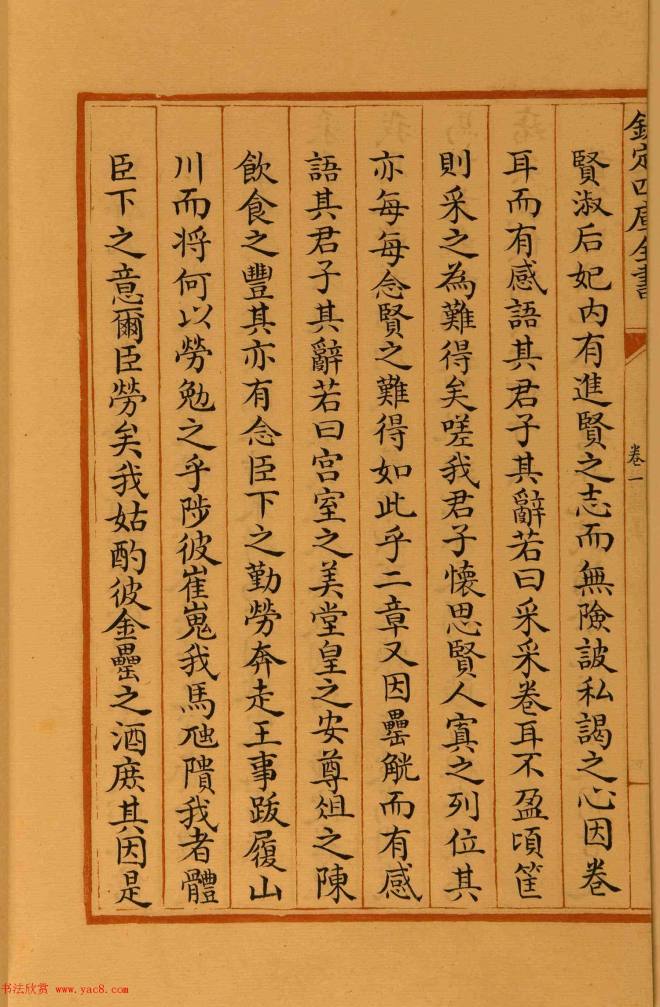 欽定四庫全書
卷一
賢淑后妃内有進賢之志而無險詖私謁之心因卷
耳而有感語其君子其辭若曰采采卷耳不盈頃筐
則采之為難得矣嗟我君子懷思賢人寘之列位其
亦每每念賢之難得如此乎二章又因罍觥而有感
語其君子其辭若曰宫室之美堂皇之安尊俎之陳
飲食之豐其亦有念臣下之勤勞奔走王事跋履山
川而将何以勞勉之乎陟彼崔嵬我馬虺隤我者體
臣下之意爾臣勞矣我姑酌彼金罍之酒庶其因是
书法欣赏 www.yac8.com